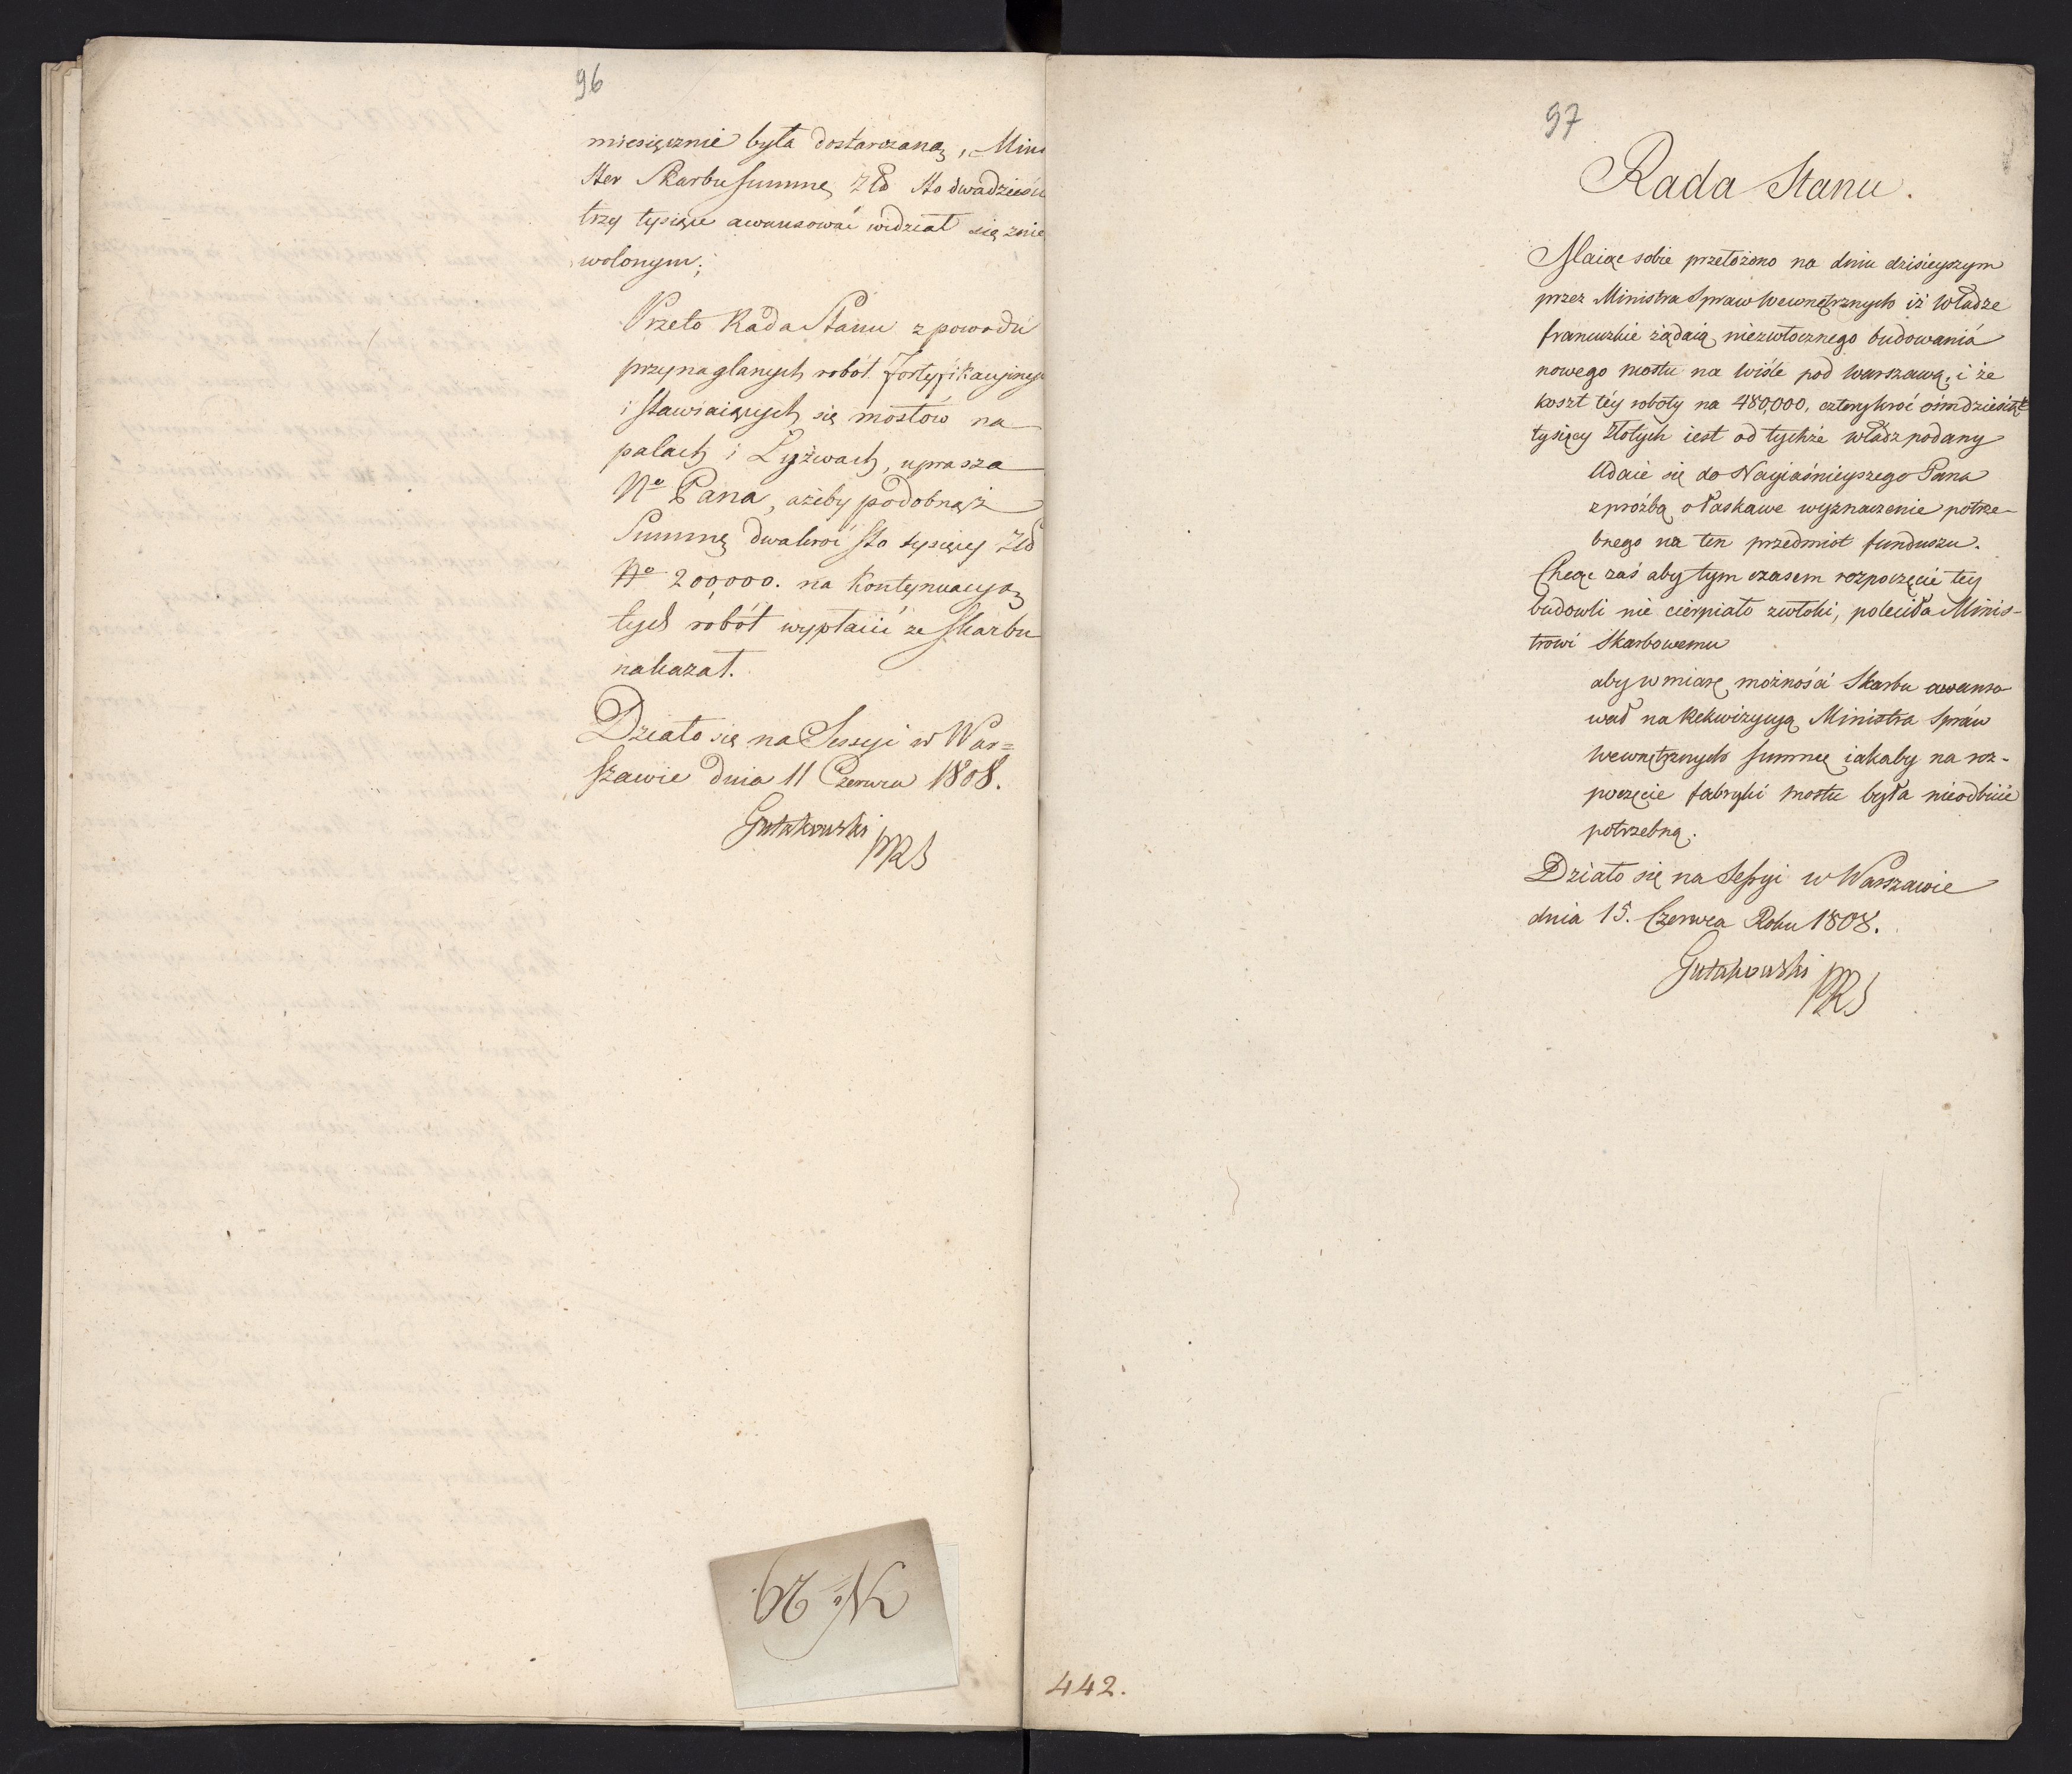 96
miesięcznie była dostarczaną, Mini
ster Skarbu summę Złd sto dwadzieścia
trzy tysiące awansować widział się znie
wolonym;
Przeto Rada Stanu z powodu
przynaglanych robót fortyfikacyinych
i stawiaiących się mostów na
palach i Łyżwach, uprasza
No Pana, ażeby podobnąż
Summę dwakroć sto tysięcy Złd
No 200,000. na kontynuacyą
tych robót wypłacić ze Skarbu
nakazał.
Działo się na Sessyi w War=
szawie dnia 11 Czerwca 1808.
Gutakowski
PRS
No 29
97
Rada Stanu.
Maiąc sobie przełożono na dniu dzisieyszym
przez Ministra Spraw Wewnętrznych iż Władze
francuzkie żądaią niezwłocznego budowania
nowego mostu na Wiśle pod Warszawą, i że
koszt téy roboty na 480,000, czterykroć ośmdziesiąt
tysięcy Złotych iest od tychże władz podany
Udaie się do Nayiaśnieyszego Pana
z prózbą o łaskawe wyznaczenie potrze-
bnego na ten przedmiot funduszu.
Chcąc zaś aby tym czasem rozpoczęcie tey
budowli nie cierpiało zwłoki, poleciła Minis-
trowi Skarbowemu
aby w miarę możności Skarbu awanso
wał na Rekwizycyą Ministra Spraw
Wewnętrznych summę iakaby na roz-
poczęcie fabryki mostu była nieodbicie
potrzebną.
Działo się na Sessyi w Warszawie
dnia 15. Czerwca Roku 1808.
Gutakowski
PRS
442.